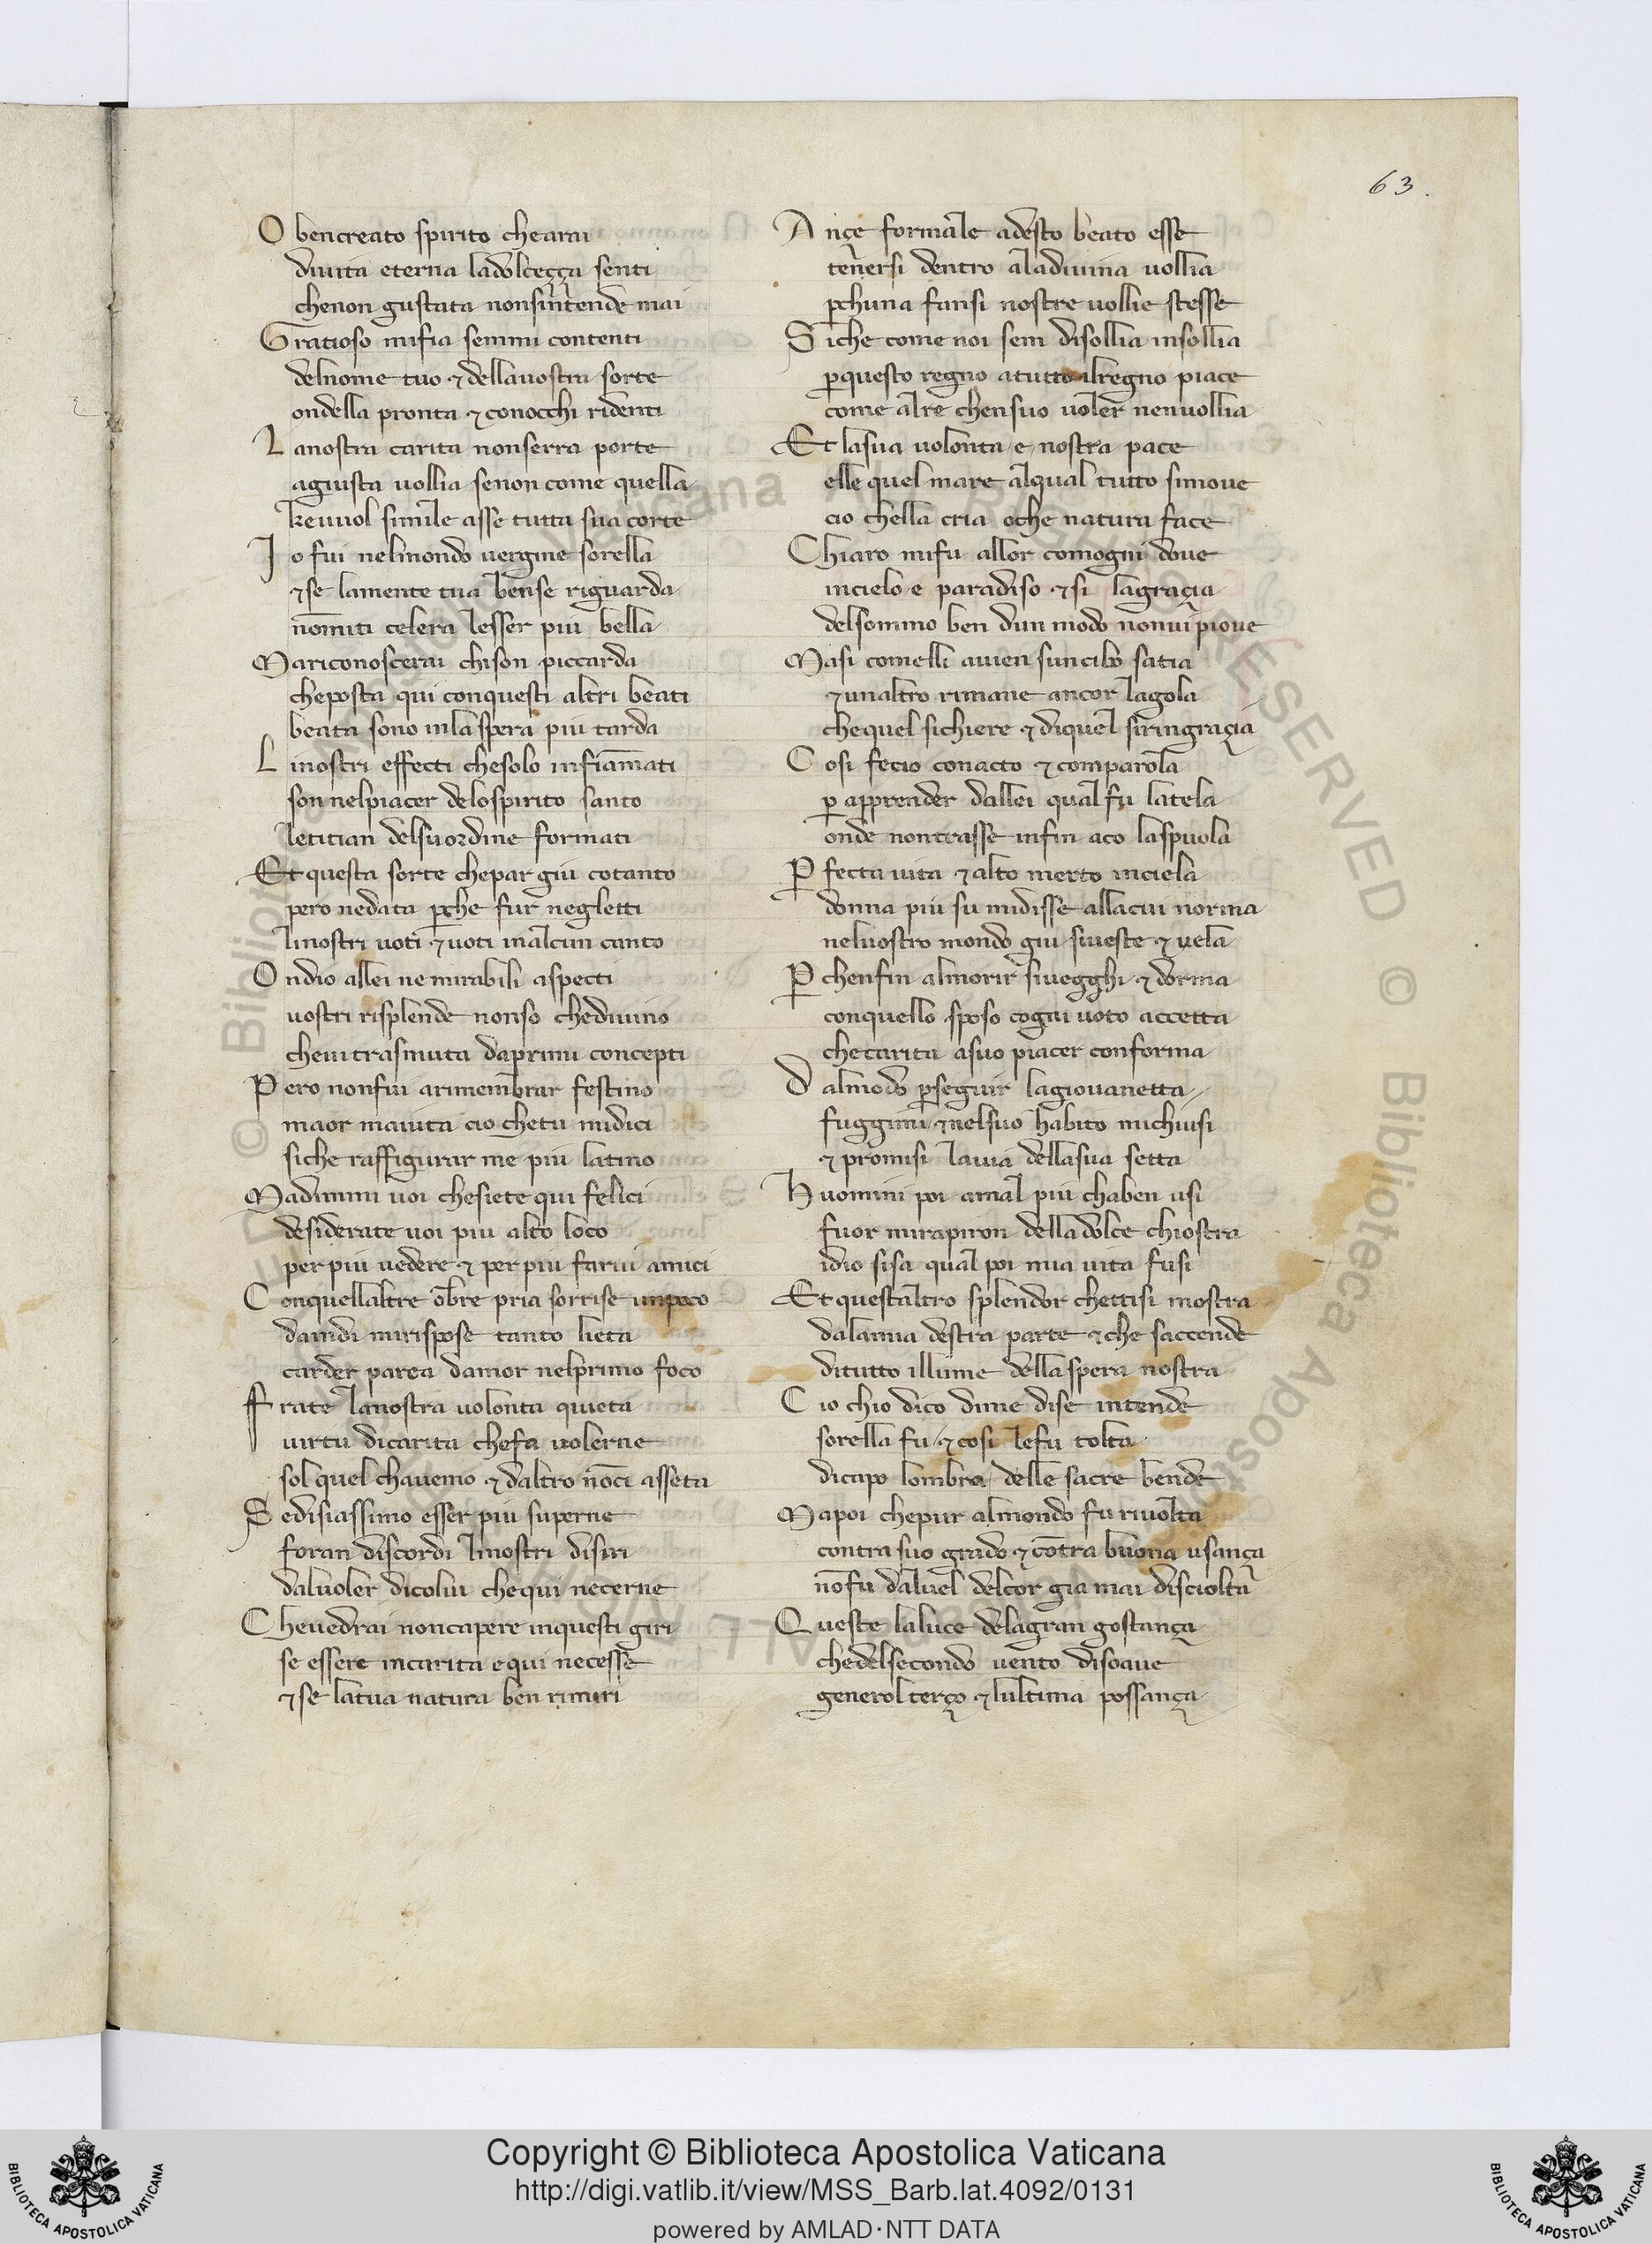 63.
O bencreato spirito chearai
diuita eterna ladolceçça senti
chenon gustata nonsin̄tende mai
Gratioso mifia semmi contenti
delnome tuo ⁊ dellauostra sorte
ondella pronta ⁊ conocchi ridenti
Lanostra carita nonserra porte
agiusta uollia senon come quella
keuuol simile asse tutta sua corte
Io fui nelmondo uergine sorella
⁊ se lamente tua bense riguarda
nōmiti celera lesser piu bella
Mariconoscerai chison piccarda
cheposta qui conquesti altri beati
beata sono inlaspera piu tarda
Linostri effecti chesolo infiām̄ati
son nelpiacer delospirito santo
letitian delsuordine formati
Et questa sorte chepar giu cotanto
pero nedata ꝑche fur negletti
linostri uoti ⁊ uoti inalcun canto
Ondio allei nemirabili aspecti
uostri risplende nonso chediuino
cheuitrasmuta daprimi concepti
Pero nonfui arimembrar festino
maor maiuta cio chetu midici
siche raffigurar me piu latino
Madimmi uoi chesiete qui felici
desiderate uoi piu alto loco
per piu uedere ⁊ per piu farui amici
Conquellaltre ōbre pria sorrise unpoco
daindi mirispose tanto lieta
carder parea damor nelprimo foco
Frate lanostra uolonta quieta
uirtu dicarita chefa uolerne
sol quel chauemo ⁊ daltro nōci asseta
Sedisiassimo esser piu superne
foran discordi linostri disiri
daluoler dicolui chequi necerne
Cheuedrai noncapere inquesti giri
se essere incarita equi necesse
⁊ se latua natura ben rimiri
Ançe formale adesto beato esse
teñersi dentro aladiuina uollia
ꝑchuna fansi nostre uollie stesse
Siche come noi sem disollia insollia
ꝑquesto regno atutto ilregno piace
come alre chensuo uoler nenuollia
Et lasua uolonta e nostra pace
elle quel mare alqual tutto simoue
cio chella cria oche natura face
Chiaro mifu allor comogni doue
incielo e paradiso ⁊ si lagraçia
delsommo ben dun modo nonui pioue
Masi comelli auien suncibo satia
⁊ unaltro rimane ancor lagola
chequel sichiere ⁊ diquel siringraçia
Cosi fecio conacto ⁊ comparola
ꝑ apprender dallei qual fu latela
onde nontrasse infin aco laspuola
Ꝑfecta uita ⁊ alto merto inciela
donna piu su midisse allacui norma
neluostro mondo giu siueste ⁊ uela
Ꝑchenfin almorir siuegghi ⁊ dorma
conquello sposo cogni uoto accetta
checarita asuo piacer conforma
Dalmodo ꝑseguir lagiouanetta
fuggimi ⁊ nelsuo habito michiusi
⁊ promisi lauia dellasua setta
Huomini poi amal piu chaben usi
fuor mirapiron delladolce chiostra
idio sisa qual poi mia uita fusi
Et questaltro splendor chettisi mostra
dalamia destra parte ⁊ che saccende
ditutto illume dellaspera nostra
Cio chio dico dime dise intende
sorella fu ⁊ cosi lefu tolta
dicapo lombra delle sacre bende
Mapoi chepur almondo fu riuolta
contra suo grado ⁊ cōtra buona usança
nōfu daluel delcor gia mai disciolta
Queste laluce delagran gostança
chedelsecondo uento disoaue
generol terço ⁊ lultima possança
Copyright © Biblioteca Apostolica Vaticana
http://digi.vatlib.it/view/MSS_Barb.lat.4092/0131
powered by AMLAD·NTT DATA
BIBLIOTECA APOSTOLICA VATICANA
BIBLIOTECA APOSTOLICA VATICANA